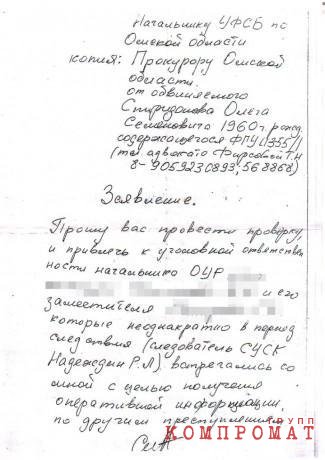 Начальнику УФСБ по
Омской области
копия: Прокурору Омской
области.
от обвиняемого
Спиридонова Олега
Семеновича 1960г. рожд.
содержащегося ФГУ
(тел. адвоката Фирсовой Т.Н
8-9059230893, 568868)
Заявление.
Прошу вас провести проверку,
и привлечь к уголовной ответствен
ности начальника ОУР
и его
заместителя
которые неоднократно в период
следствия (следователь СУСК
Надеждин Р.Л) встречались со
мной с целью получения
оперативной информации,
по другим преступлениям
ГРУПП
КОМПРОМАТ